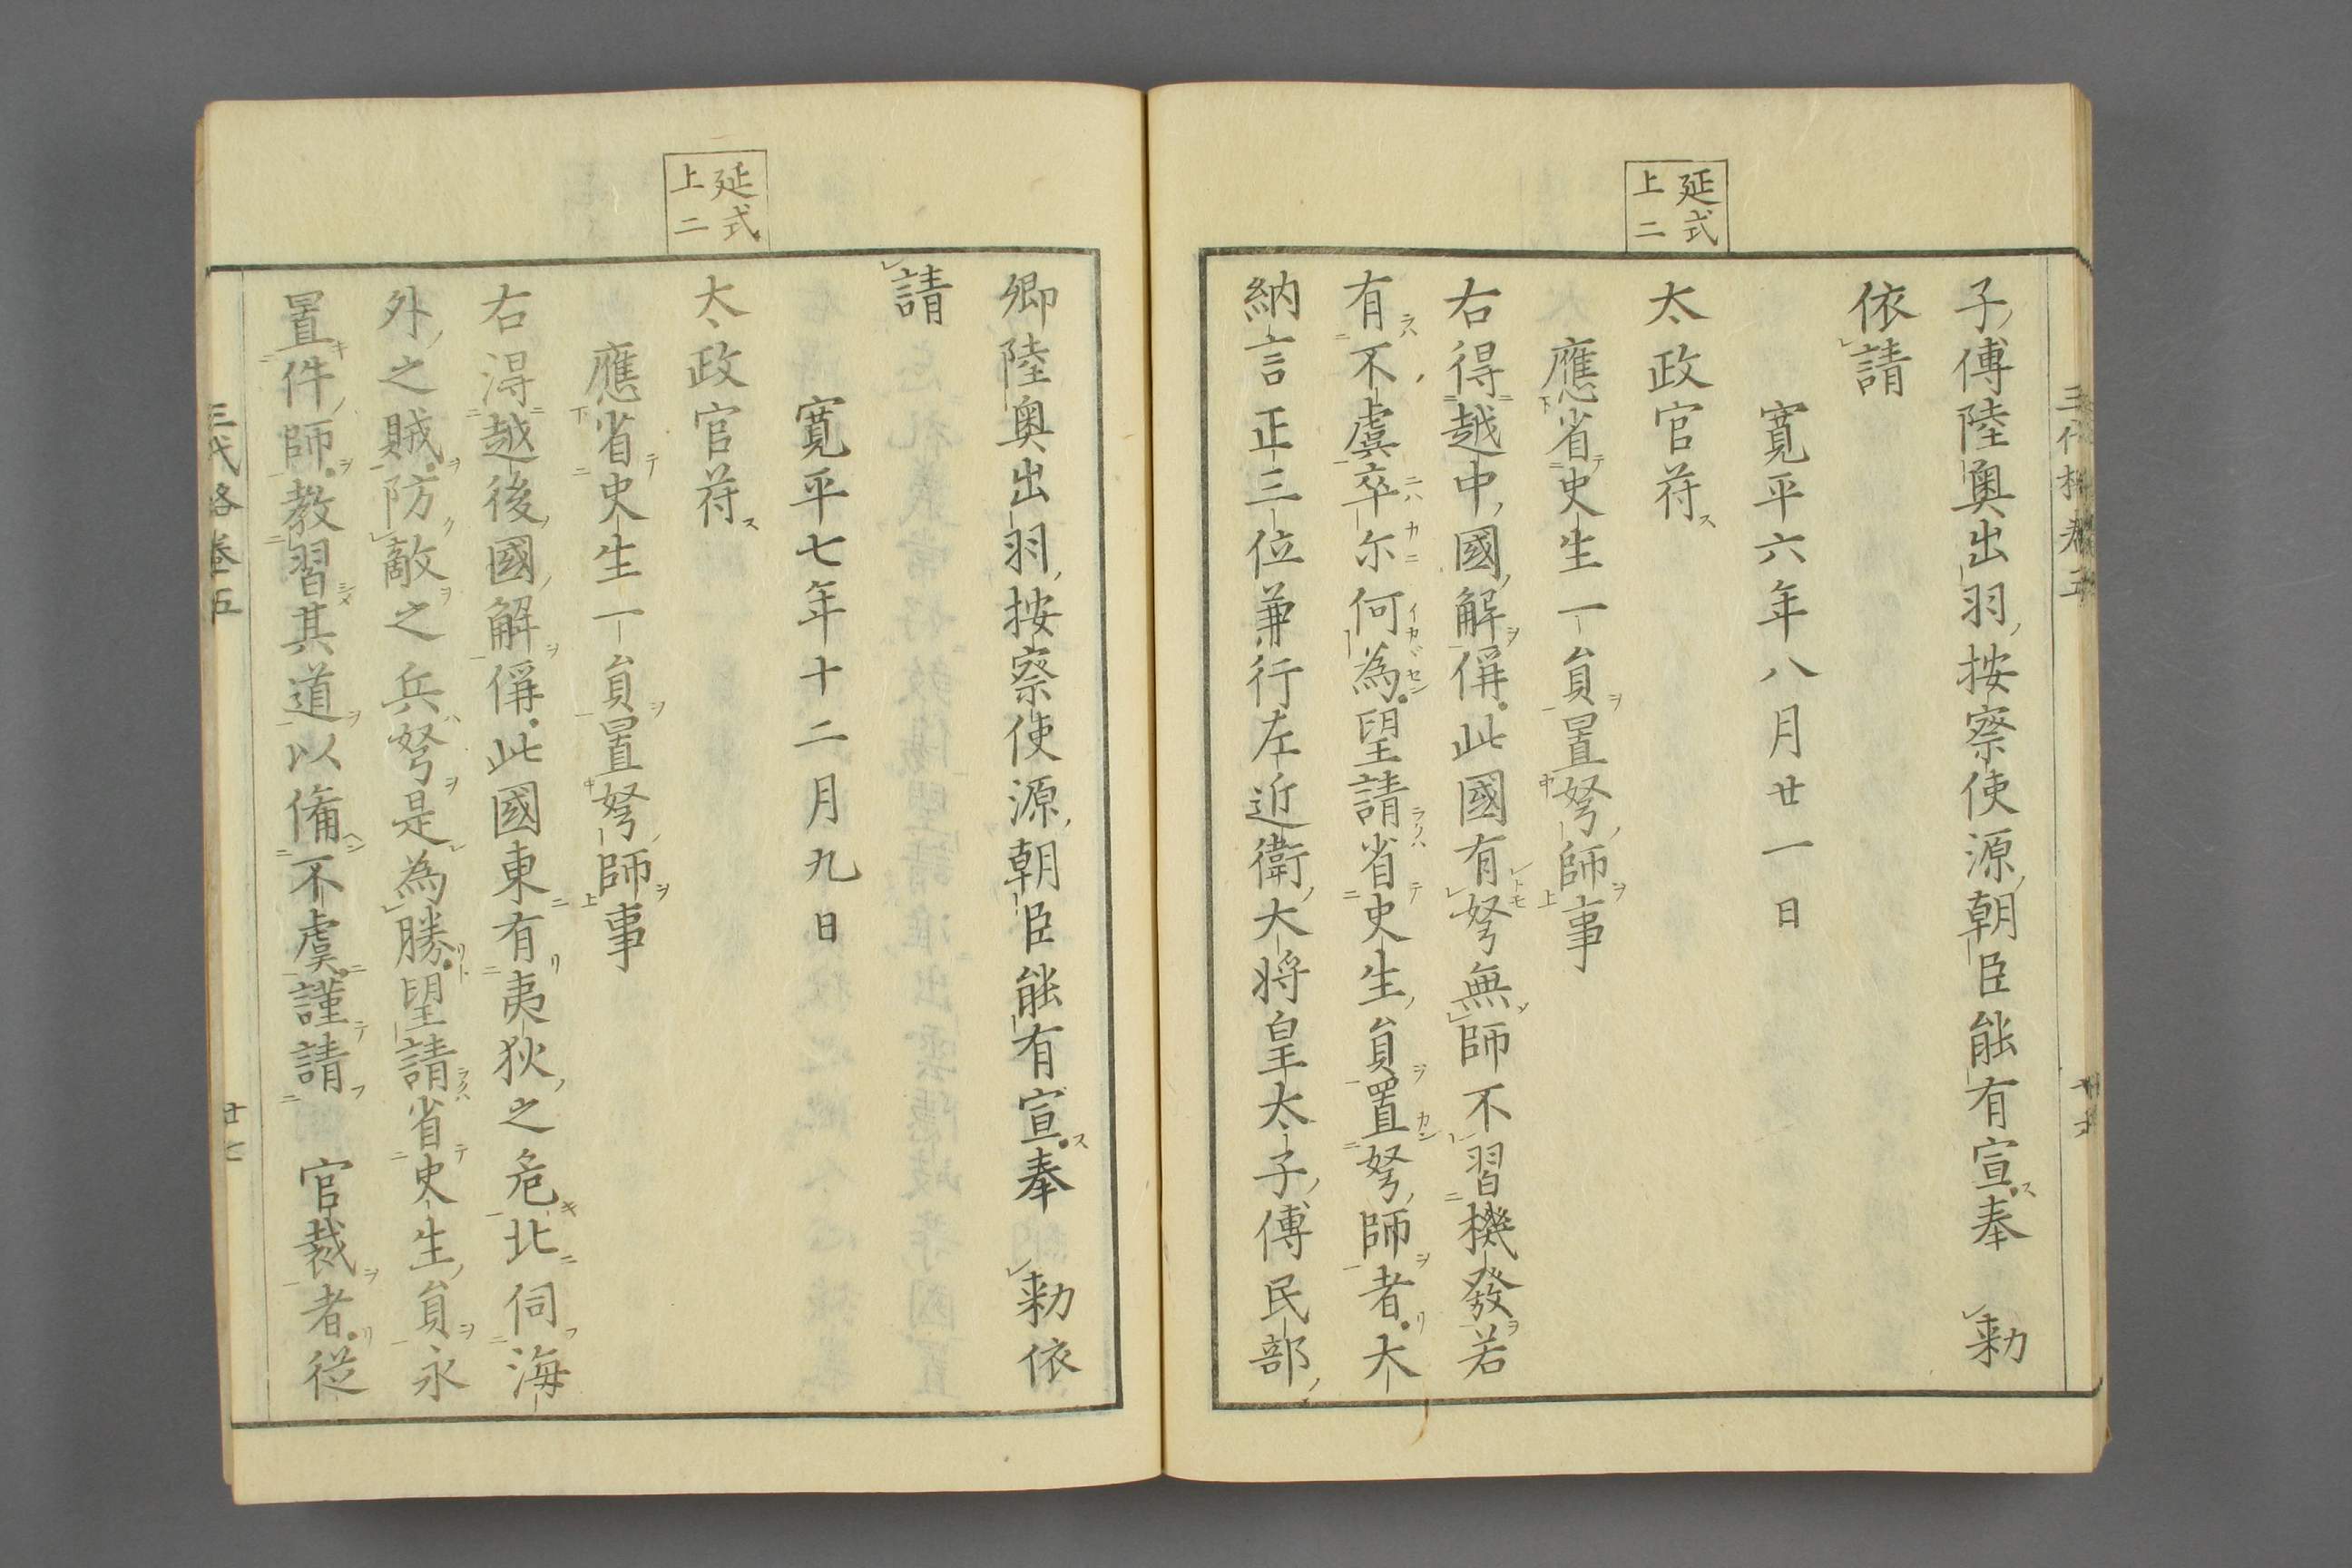 延式
上二
子傅陸奧出羽按察使源朝臣能有宣奉　勅
依請
寛平六年八月廿一日
太政官苻
應省史生一員置弩師事
右得越中國解偁此國有弩無師不習機發若
有不虞卒尓何為望請省史生員置弩師者大
納言正三位兼行左近衛大将皇太子傅民部
延式
上二
卿陸奧出羽按察使源朝臣能有宣奉　勅依
請
寛平七年十二月九日
太政官苻
應省史生一員置弩師事
右得越後國解偁此國東有夷狄之危北伺海
外之賊防敵之兵弩是為勝望請省史生員永
置件師教習其道以備不虞謹請　官裁者從
三代格卷五
廿七